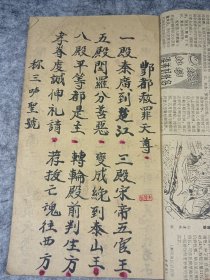 酆都赦罪天尊
一殿秦廣到楚江 三殿宋帝五官王
五殿閻羅分善惡 變成統到泰山王
八殿平等都是主 轉輪殿前判生方
衆等虔誠伸礼請 荐拔亡魂往西方
三炉聖號